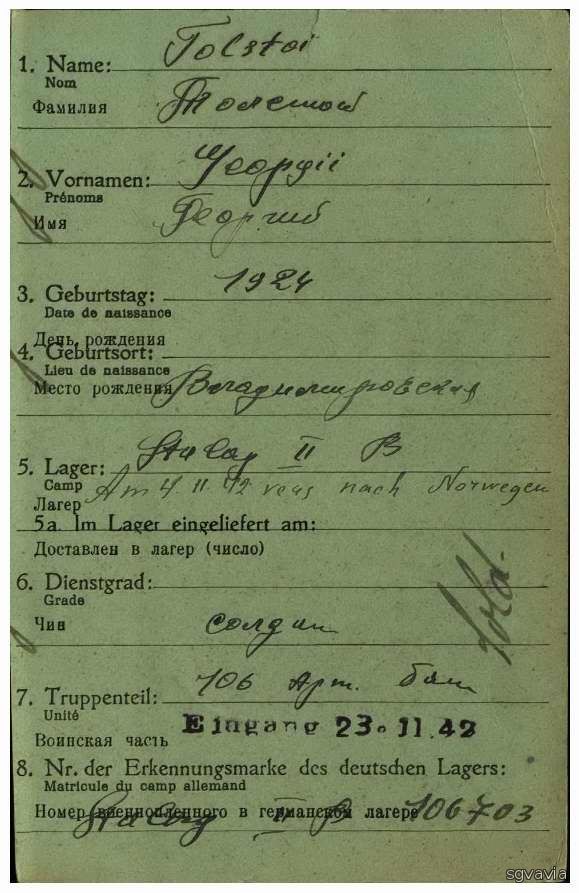 Tolstoi
1. Name:
Nom
Фамилия Толстой
Georgii
2. Vornamen:
Prénoms
Имя Георгий
1924
3. Geburtstag:
Date de naissance
День рождения
4. Geburtsort:
Lieu de naissance
Место рождения Владимировская
Stalag II B
5. Lager:
Camp Am 4.11.42 nach Norwegen
Лагер
5a. Im Lager eingeliefert am:
Доставлен в лагер (число)
6. Dienstgrad:
Grade
Sold.
Чин солдат
106 Арт. бат.
7. Truppenteil:
Unité
Eingang 23.11.42
Воинская часть
8. Nr. der Erkennungsmarke des deutschen Lagers:
Matricule du camp allemand
Номер военнопленного в германском лагере 106703
Stalag II B
sgvavia